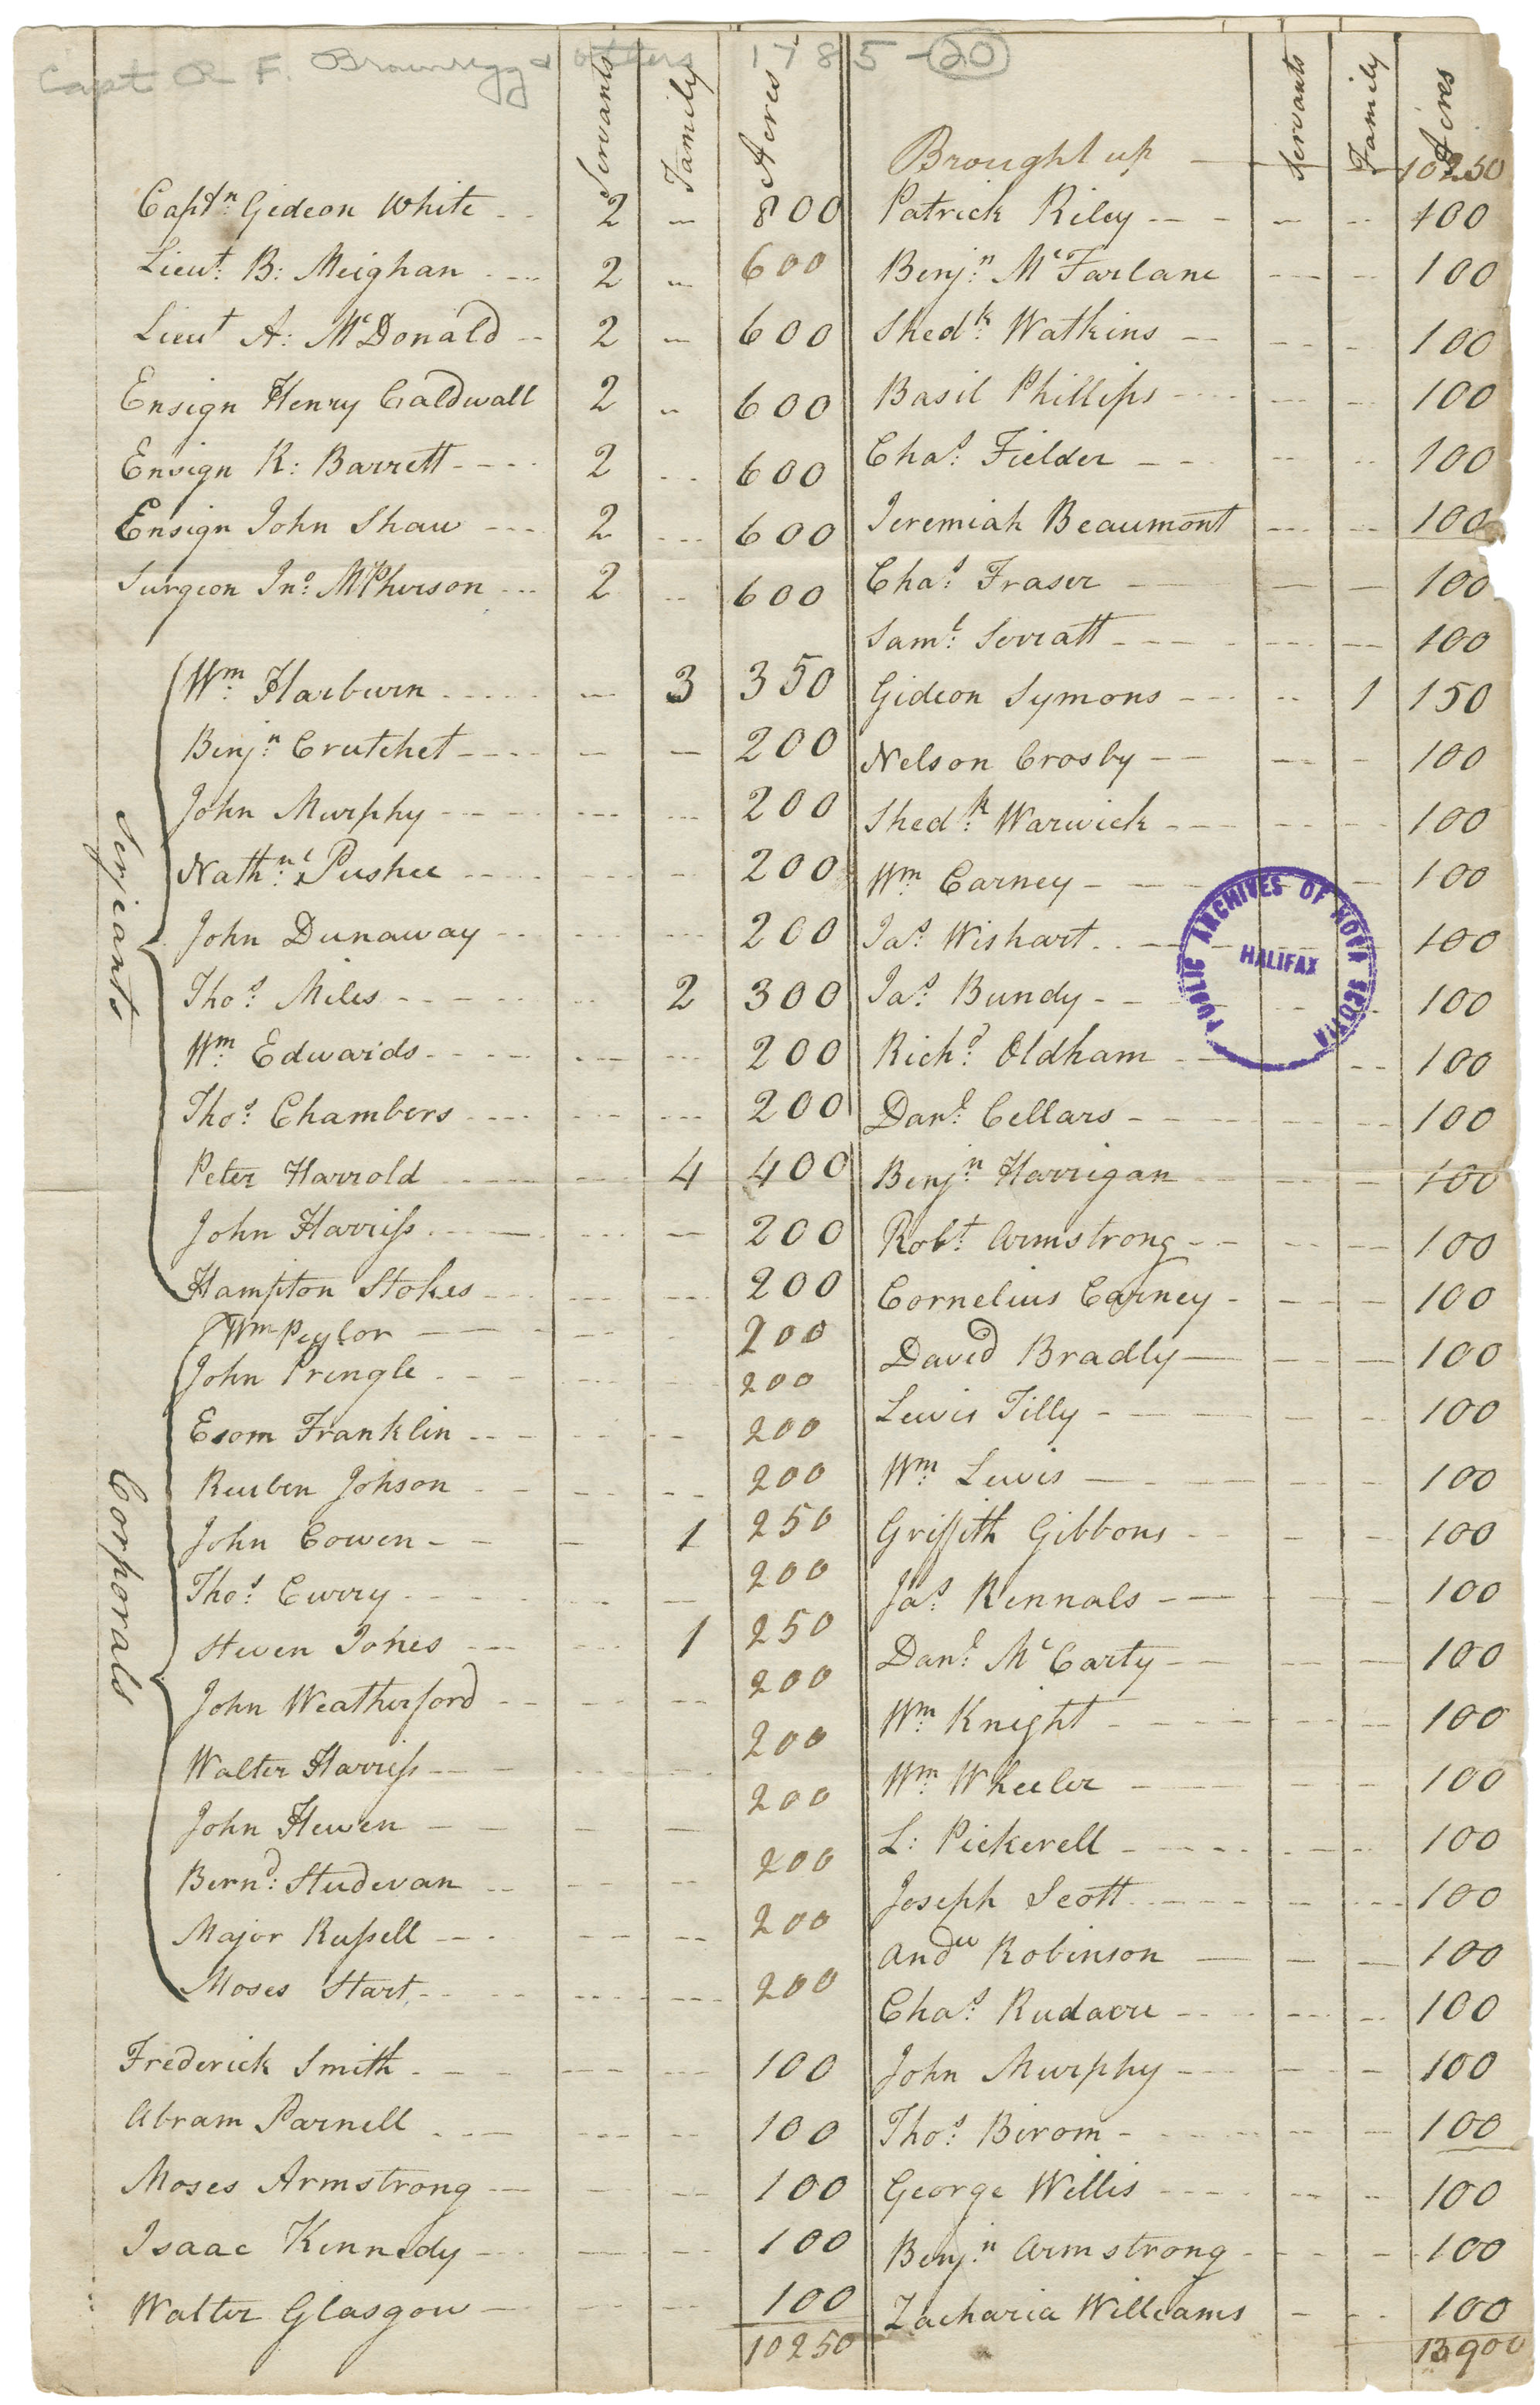 Capt R F. Brownrigg & others 1785 - 20
Servants Family Acres
Captn. Gideon White 2 800
Lieut. B: Meighan 2 600
Lieut A: McDonald 2 600
Ensign Henry Caldwall 2 600
Ensign R: Barrett 2 600
Ensign John Shaw 2 600
Surgeon Jno. McPherson 2 600
Serjeants
Wm. Harburn 3 350
Benjn. Crutchet 200
John Murphy 200
Nathnl. Pushee 200
John Dunaway 200
Thos. Miles 2 300
Wm. Edwards 200
Thos. Chambers 200
Peter Harrold 4 400
John Harriss 200
Hampton Stokes 200
Corporals
Wm Peylor 200
John Pringle 200
Esom Franklin 200
Reuben Johson 200
John Cowen 1 250
Thos. Curry 200
Steven Jones 1 250
John Weatherford 200
Walter Harriss 200
John Hewen 200
Bernd. Studevan 200
Major Russell 200
Moses Start 200
Frederick Smith 100
Abram Parnell 100
Moses Armstrong 100
Isaac Kennedy 100
Walter Glasgow 100
10250
Servants Family Acres
Brought up 10250
Patrick Riley 100
Benjn. McFarlane 100
Shedk. Watkins 100
Basil Phillips 100
Chas. Fielder 100
Jeremiah Beaumont 100
Chas. Fraser 100
Saml. Serratt 100
Gideon Symons 1 150
Nelson Crosby 100
Shedk. Warwick 100
Wm. Carney 100
Jas. Wishart 100
Jas. Bundy 100
Richd. Oldham 100
Danl. Cellars 100
Benjn. Harrigan 100
Robt. Armstrong 100
Cornelius Carney 100
David Bradly 100
Lewis Tilly 100
Wm. Lewis 100
Griffith Gibbons 100
Jas. Rennals 100
Danl. McCarty 100
Wm. Knight 100
Wm. Wheeler 100
L: Pickerell 100
Joseph Scott 100
Andw Robinson 100
Chas. Rudacre 100
John Murphy 100
Thos. Birom 100
George Willis 100
Benjn. Armstrong 100
Zacharia Williams 100
13900
PUBLIC ARCHIVES OF NOVA SCOTIA
HALIFAX